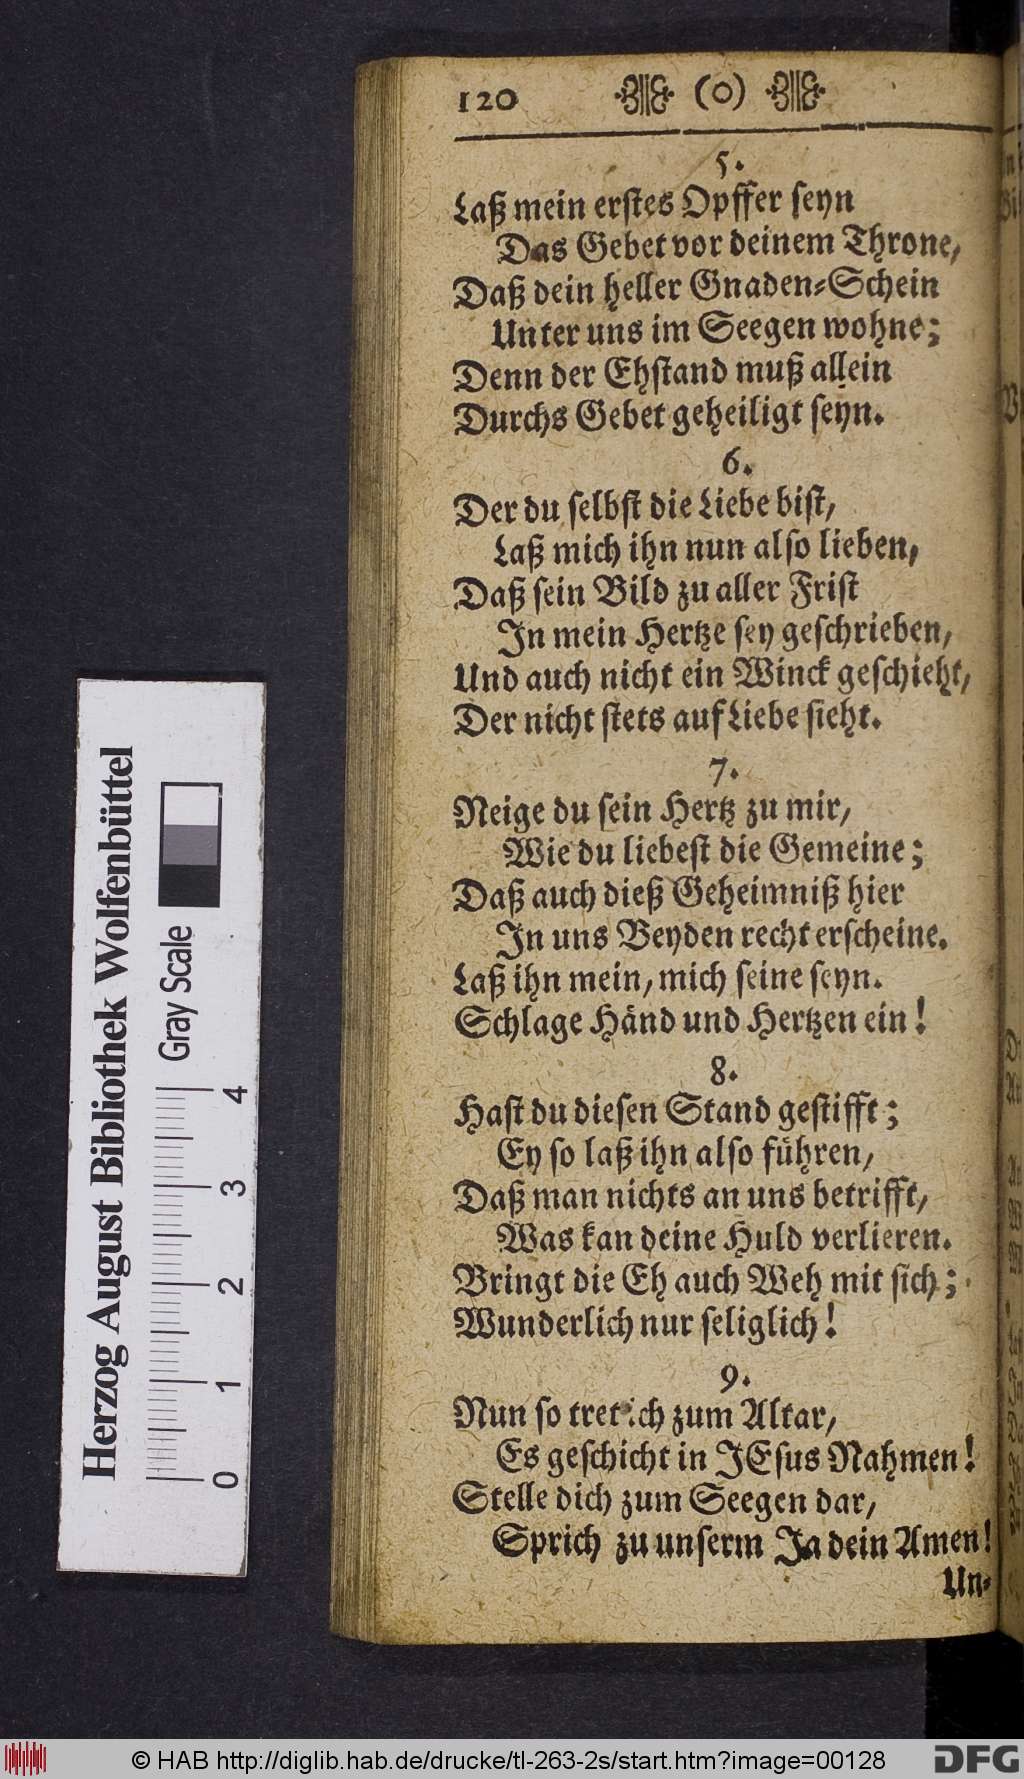 120 (0)
5.
Laß mein erstes Opffer seyn
Das Gebet vor deinem Throne,
Daß dein heller Gnaden-Schein
Unter uns im Seegen wohne;
Denn der Ehstand muß allein
Durchs Gebet geheiligt seyn.
6.
Der du selbst die Liebe bist,
Laß mich ihn nun also lieben,
Daß sein Bild zu aller Frist
In mein Hertze sey geschrieben,
Und auch nicht ein Winck geschieht,
Der nicht stets auf Liebe sieht.
7.
Neige du sein Hertz zu mir,
Wie du liebest die Gemeine;
Daß auch dieß Geheimniß hier
In uns Beyden recht erscheine.
Laß ihn mein, mich seine seyn.
Schlage Händ und Hertzen ein!
8.
Hast du diesen Stand gestifft;
Ey so laß ihn also führen,
Daß man nichts an uns betrifft,
Was kan deine Huld verlieren.
Bringt die Eh auch Weh mit sich;
Wunderlich nur seliglich!
9.
Nun so tret ich zum Altar,
Es geschicht in JEsus Nahmen!
Stelle dich zum Seegen dar,
Sprich zu unserm Ja dein Amen!
Un-
Herzog August Bibliothek Wolfenbüttel
Gray Scale
0 1 2 3 4
© HAB http://diglib.hab.de/drucke/tl-263-2s/start.htm?image=00128
DFG